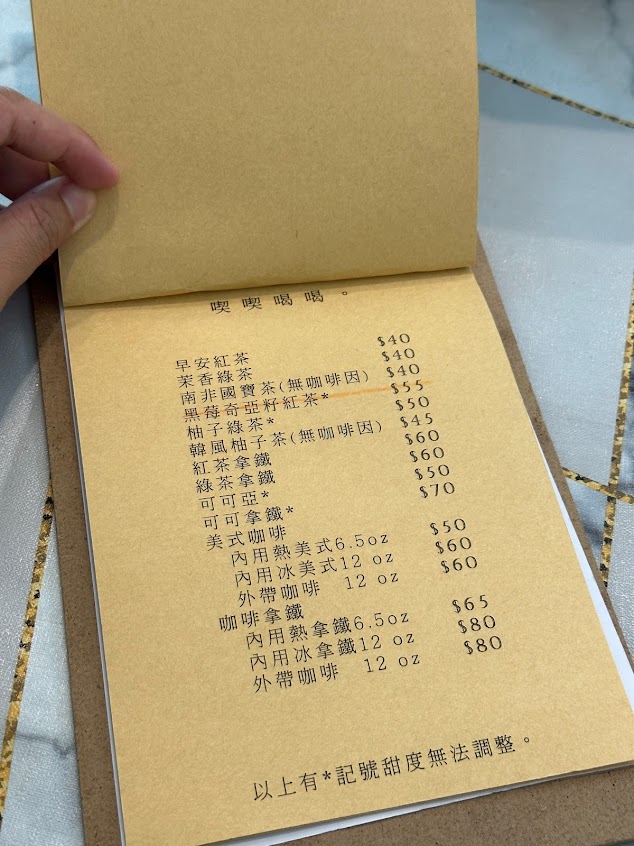 喫喫喝喝。
早安紅茶 $40
茉香綠茶 $40
南非國寶茶(無咖啡因) $40
黑莓奇亞籽紅茶* $55
柚子綠茶* $50
韓風柚子茶(無咖啡因) $45
紅茶拿鐵 $60
綠茶拿鐵 $60
可可亞* $50
可可拿鐵* $70
美式咖啡
內用熱美式6.5oz $50
內用冰美式12 oz $60
外帶咖啡 12 oz $60
咖啡拿鐵
內用熱拿鐵6.5oz $65
內用冰拿鐵12 oz $80
外帶咖啡 12 oz $80
以上有*記號甜度無法調整。